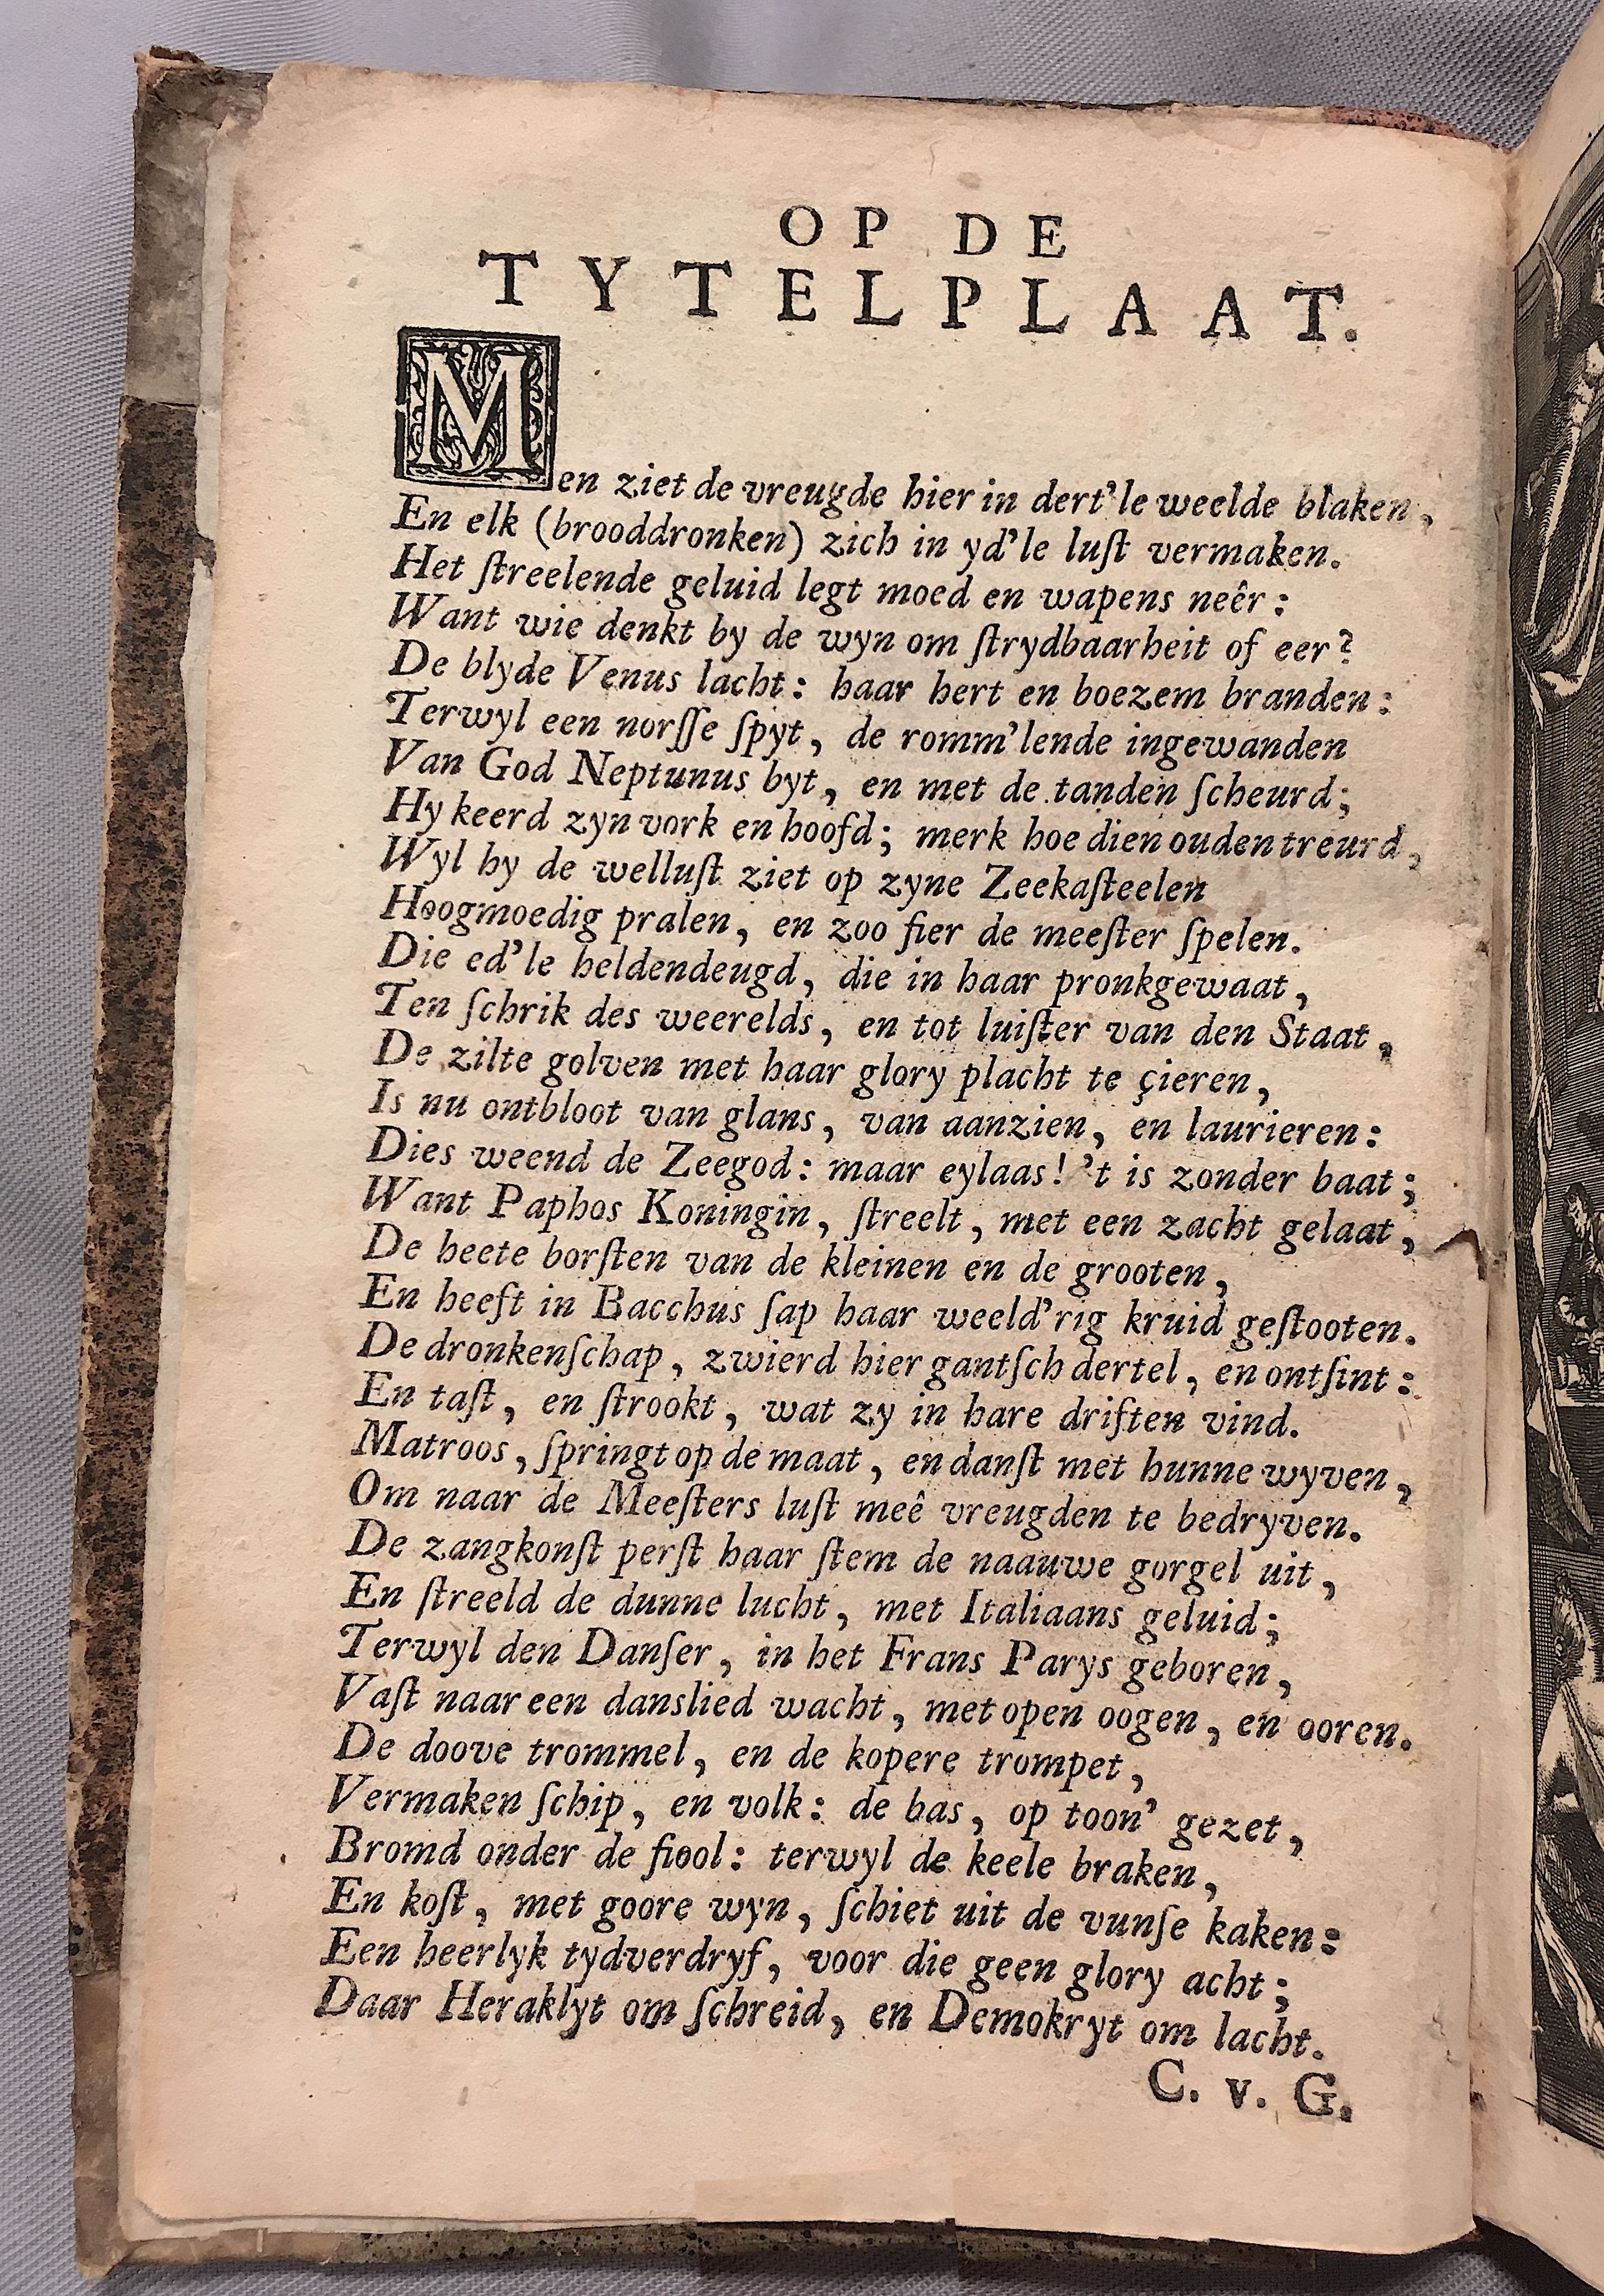 OP DE
TYTELPLAAT.
Men ziet de vreugde hier in dert'le weelde blaken,
En elk (brooddronken) zich in yd'le luſt vermaken.
Het ſtreelende geluid legt moed en wapens neêr:
Want wie denkt by de wyn om ſtrydbaarheit of eer?
De blyde Venus lacht: haar hert en boezem branden:
Terwyl een norſſe ſpyt, de romm'lende ingewanden
Van God Neptunus byt, en met de tanden ſcheurd;
Hy keerd zyn vork en hoofd; merk hoe dien ouden treurd,
Wyl hy de welluſt ziet op zyne Zeekaſteelen
Hoogmoedig pralen, en zoo fier de meeſter ſpelen.
Die ed'le heldendeugd, die in haar pronkgewaat,
Ten ſchrik des weerelds, en tot luiſter van den Staat,
De zilte golven met haar glory placht te çieren,
Is nu ontbloot van glans, van aanzien, en laurieren:
Dies weend de Zeegod: maar eylaas! 't is zonder baat;
Want Paphos Koningin, ſtreelt, met een zacht gelaat,
De heete borſten van de kleinen en de grooten,
En heeft in Bacchus ſap haar weeld'rig kruid geſtooten.
De dronkenſchap, zwierd hier gantſch dertel, en ontſint:
En taſt, en ſtrookt, wat zy in hare driften vind.
Matroos, ſpringt op de maat, en danſt met hunne wyven,
Om naar de Meeſters luſt meê vreugden te bedryven.
De zangkonſt perſt haar ſtem de naauwe gorgel uit,
En ſtreeld de dunne lucht, met Italiaans geluid;
Terwyl den Danſer, in het Frans Parys geboren,
Vaſt naar een danslied wacht, met open oogen, en ooren.
De doove trommel, en de kopere trompet,
Vermaken ſchip, en volk: de bas, op toon' gezet,
Bromd onder de fiool: terwyl de keele braken,
En koſt, met goore wyn, ſchiet uit de vunſe kaken:
Een heerlyk tydverdryf, voor die geen glory acht;
Daar Heraklyt om ſchreid, en Demokryt om lacht.
C. v. G.